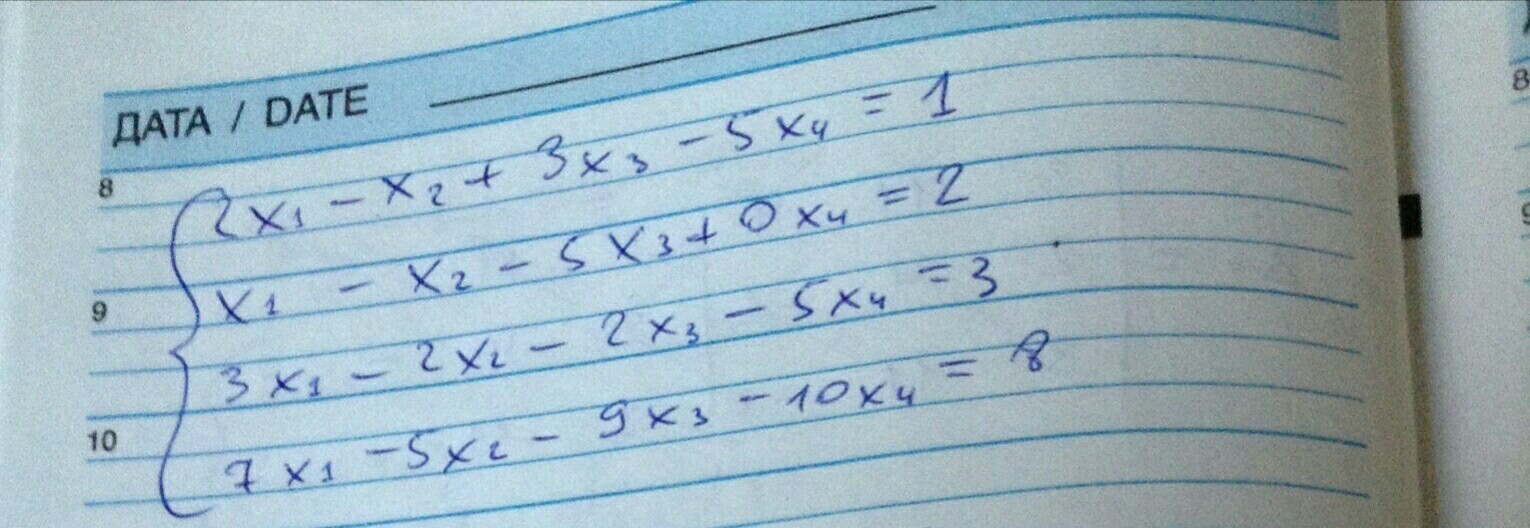 ДАТА / DATE
8
2x₁ - x₂ + 3x₃ - 5x₄ = 1
x₁ - x₂ - 5x₃ + 0x₄ = 2
9
3x₁ - 2x₂ - 2x₃ - 5x₄ = 3
10
7x₁ - 5x₂ - 9x₃ - 10x₄ = 8
8